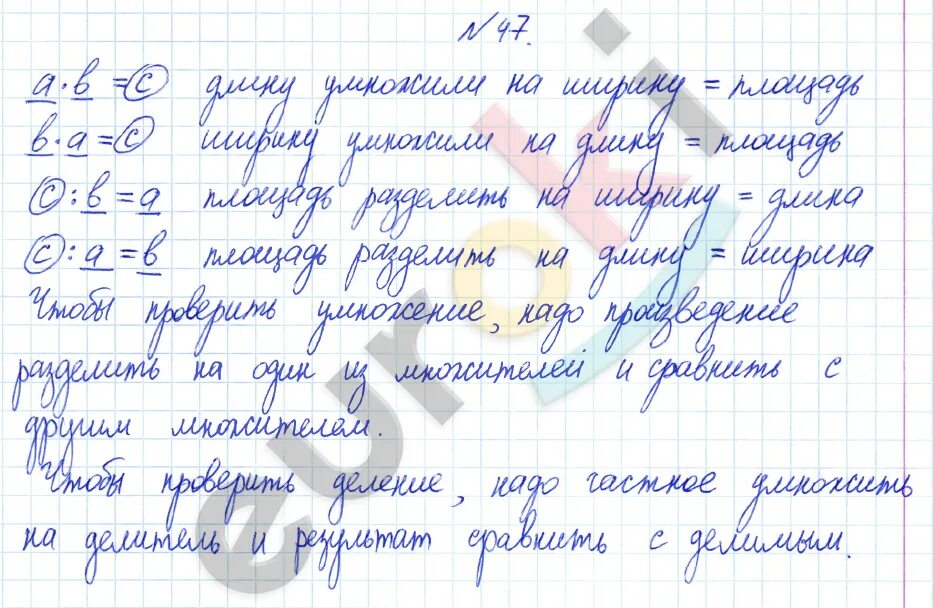 № 47.
a · b = c длину умножили на ширину = площадь
b · a = c ширину умножили на длину = площадь
c : b = a площадь разделить на ширину = длина
c : a = b площадь разделить на длину = ширина
Чтобы проверить умножение, надо произведение
разделить на один из множителей и сравнить с
другим множителем.
Чтобы проверить деление, надо частное умножить
на делитель и результат сравнить с делимым.
euroki